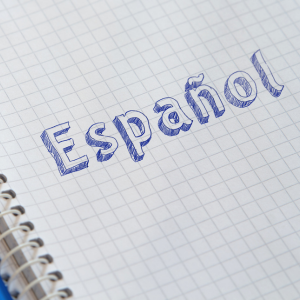 Español